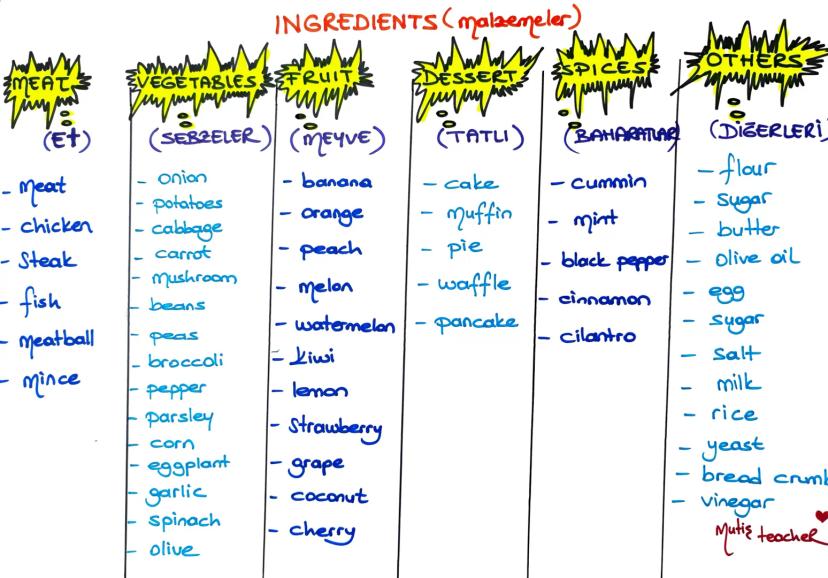 INGREDIENTS (malzemeler)
MEAT
(Et)
- meat
- chicken
- Steak
- fish
- meatball
- mince
VEGETABLES
(SEBZELER)
- onion
- potatoes
- cabbage
- carrot
- mushroom
- beans
- peas
- broccoli
- pepper
- parsley
- corn
- eggplant
- garlic
- spinach
- olive
FRUIT
(MEYVE)
- banana
- orange
- peach
- melon
- watermelon
- kiwi
- lemon
- strawberry
- grape
- coconut
- cherry
DESSERT
(TATLI)
- cake
- muffin
- pie
- waffle
- pancake
SPICES
(BAHARATLAR)
- cummin
- mint
- black pepper
- cinnamon
- cilantro
OTHERS
(DİĞERLERİ)
- flour
- sugar
- butter
- olive oil
- egg
- sugar
- salt
- milk
- rice
- yeast
- bread crumb
- vinegar
Mutiş teacher